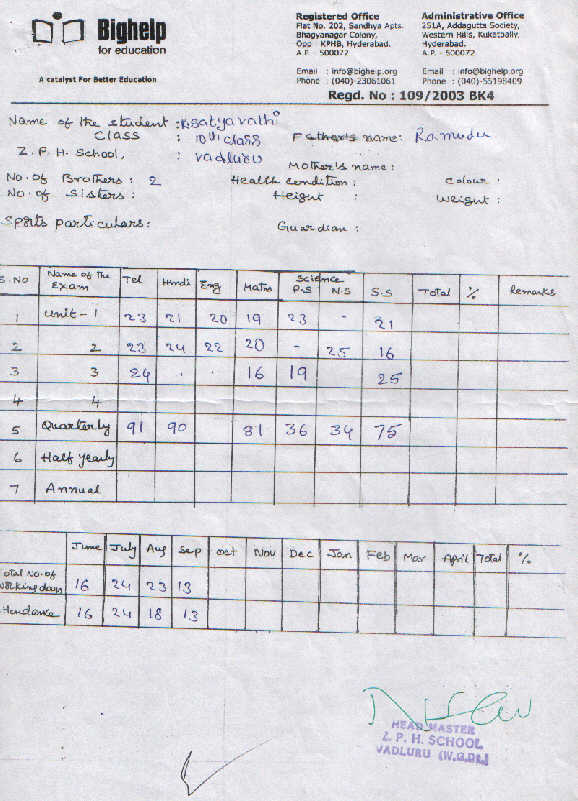 Bighelp
for education
A catalyst For Better Education
Registered Office
Flat No. 202, Sandhya Apts.
Bhagyanagar Colony,
Opp : KPHB, Hyderabad.
A.P. - 500072
Email : info@bighelp.org
Phone : (040)-23061061
Administrative Office
251A, Addagutta Society,
Western Hills, Kukatpally,
Hyderabad.
A.P. - 500072
Email : info@bighelp.org
Phone : (040)-55198409
Regd. No : 109/2003 BK4
Name of the student : K. satyavathi
Class : 10th class Father's name: Ramudu
Z. P. H. School, : vadluru
Mother's name :
No. of Brothers : 2 Health condition : Colour :
No. of Sisters : Height : Weight :
Sports particulars: Guardian :
S.No Name of the Exam Tel Hindi Eng Maths Science P.S N.S S.S Total % Remarks
1 Unit - 1 23 21 20 19 23 - 21
2 2 23 24 22 20 - 25 16
3 3 24 . . 16 19 25
4 4
5 Quarterly 91 90 81 36 34 75
6 Half yearly
7 Annual
June July Aug Sep Oct Nov Dec Jan Feb Mar April Total %
otal No. of working days 16 24 23 13
ttendance 16 24 18 13
HEAD MASTER
Z. P. H. SCHOOL
VADLURU (W.G.Dt.)